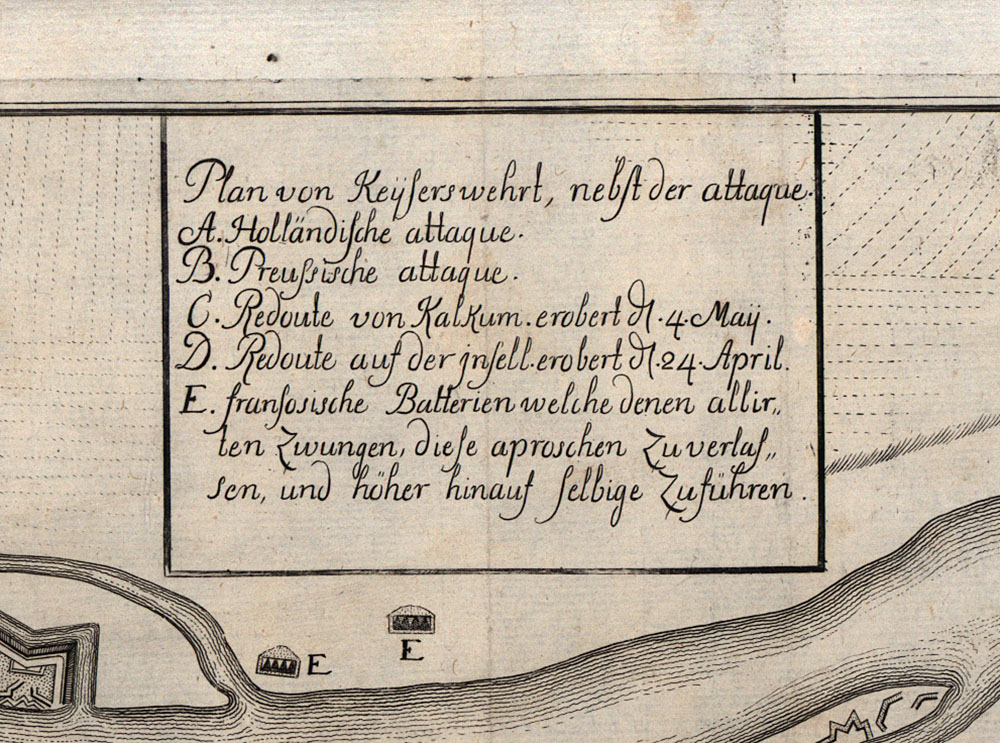 Plan von Keÿserswehrt, nebst der attaque.
A. Holländische attaque.
B. Preussische attaque.
C. Redoute von Kalkum. erobert dl. 4. Maij.
D. Redoute auf der jnsell. erobert dl. 24. April.
E. fransosische Batterien welche denen allir„
ten Zwungen, diese aproschen Zu verlas„
sen, und höher hinauf selbige Zuführen.
E
E